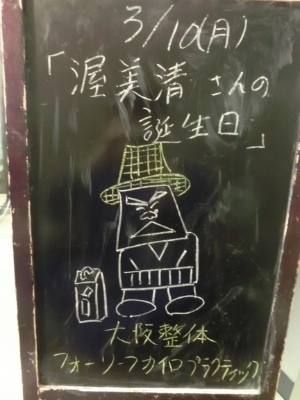 3/10(月)
「渥美清さんの
誕生日」
大阪整体
フォーリーフカイロプラクティック